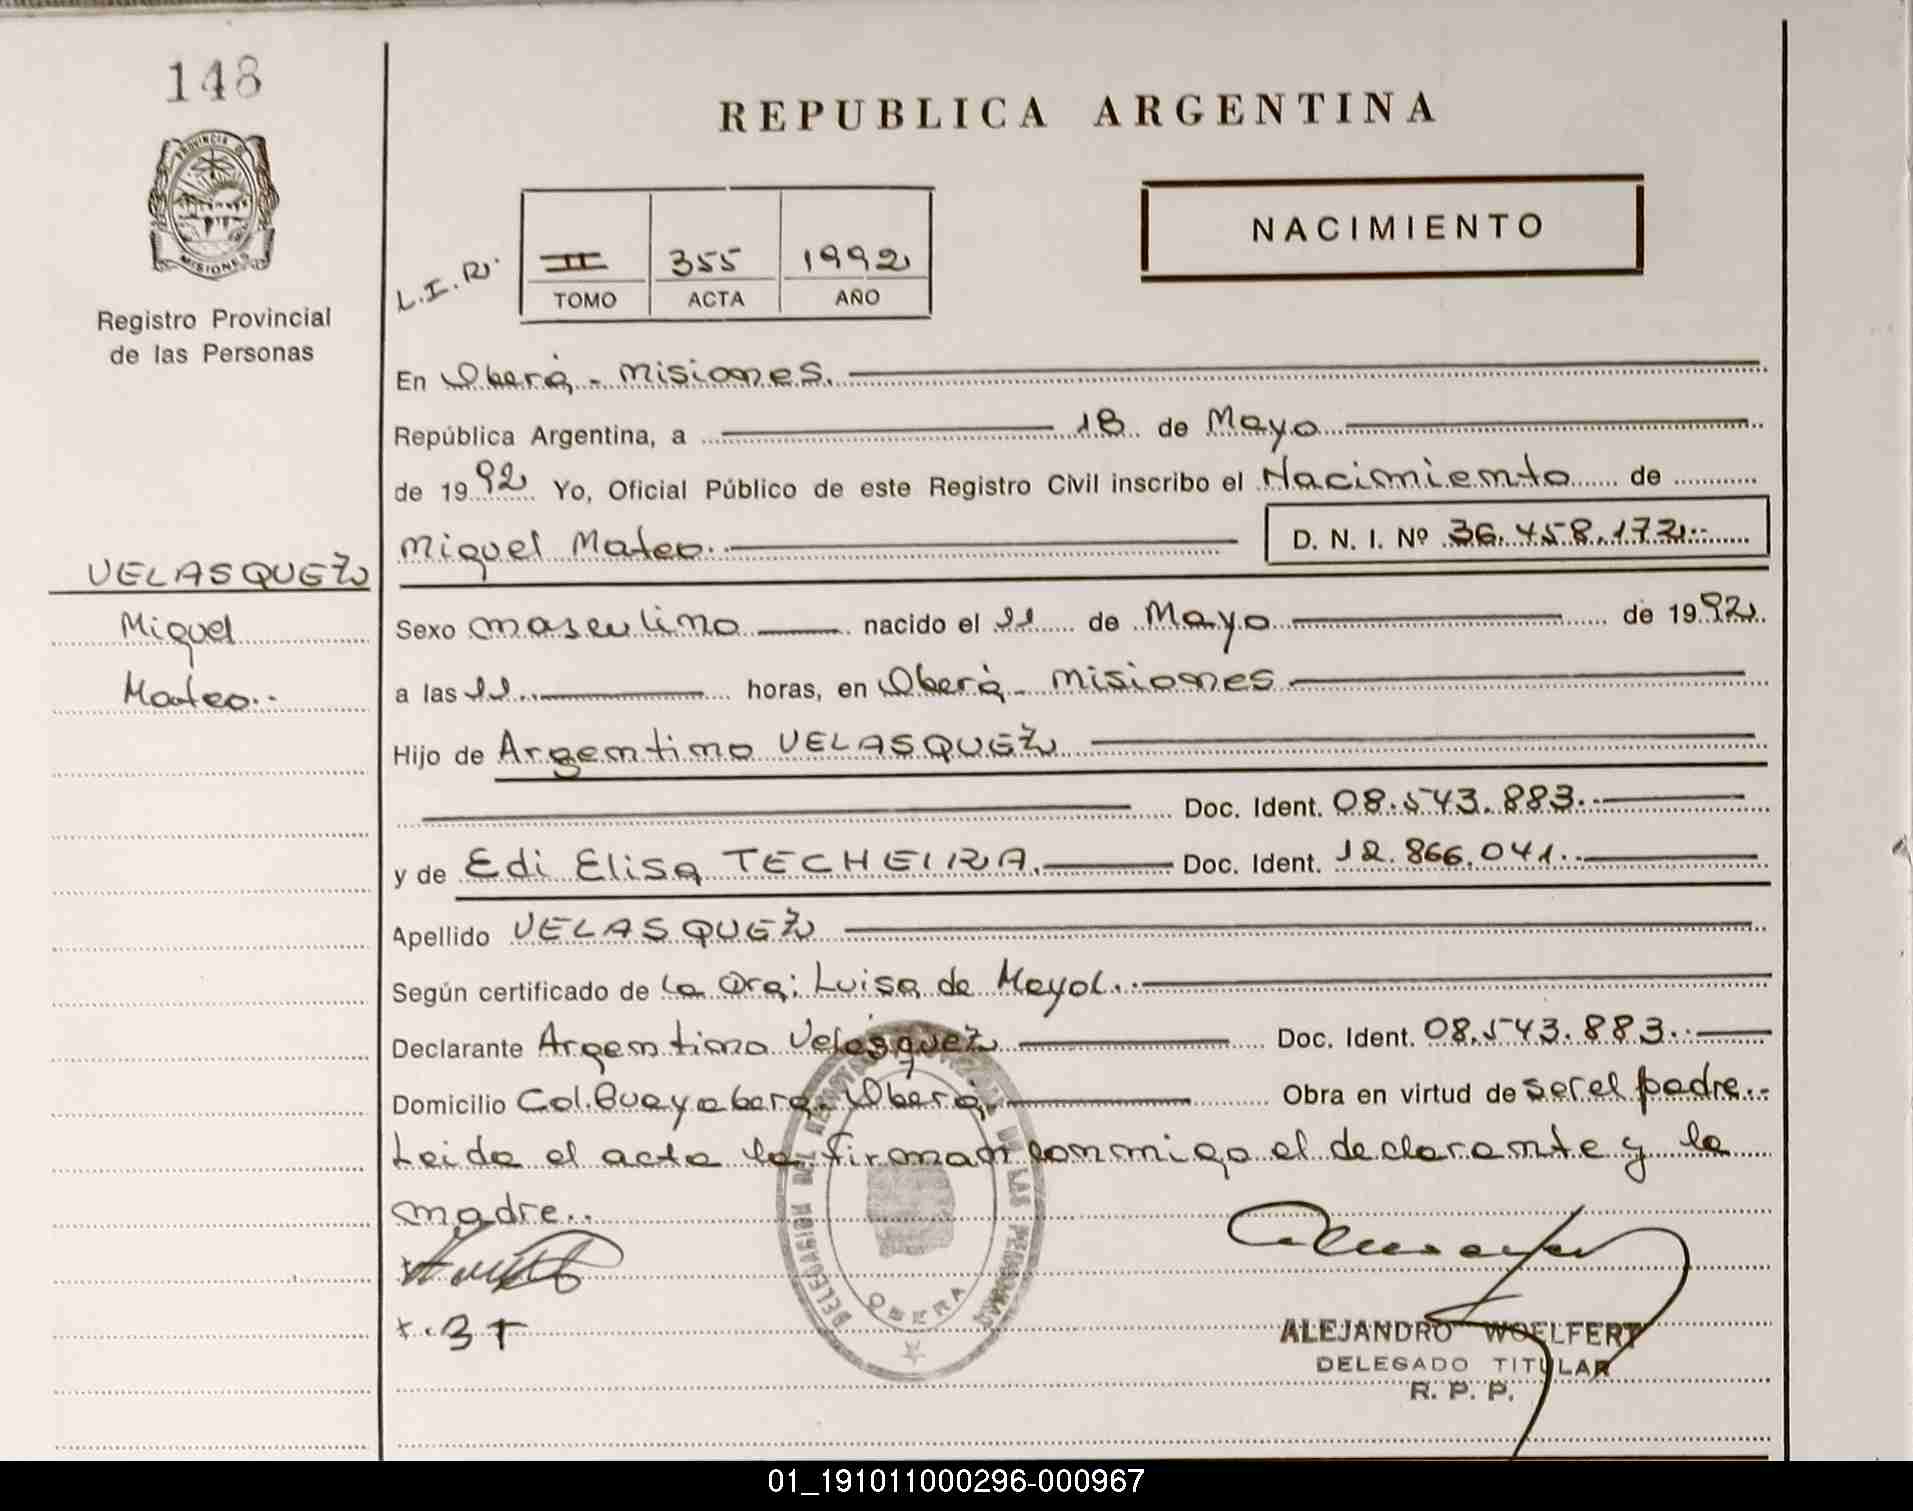 148
REPUBLICA ARGENTINA
PROVINCIA DE
MISIONES
Registro Provincial
de las Personas
L.I.R.
II 355 1992
TOMO ACTA AÑO
NACIMIENTO
En Oberá - Misiones.
República Argentina, a 18 de Mayo
de 1992 Yo, Oficial Público de este Registro Civil inscribo el Nacimiento de
Miguel Mateo.- D. N. I. Nº 36.458.172.-
VELASQUEZ
Miguel
Mateo.-
Sexo masculino nacido el 11 de Mayo de 1992
a las 11 horas, en Oberá - Misiones
Hijo de Argentino VELASQUEZ
Doc. Ident. 08.543.883.-
y de Edi Elisa TECHEIRA. Doc. Ident. 12.866.041.-
Apellido VELASQUEZ
Según certificado de la Dra: Luisa de Mayol.-
Declarante Argentino Velásquez Doc. Ident. 08.543.883.-
Domicilio Col. Guayabera - Oberá Obra en virtud de ser el padre.-
Leida el acta la firman conmigo el declarante y la
madre.-
DELEGACION DEL REGISTRO PROVINCIAL DE LAS PERSONAS
OBERA
x. 3T
ALEJANDRO WOELFERT
DELEGADO TITULAR
R. P. P.
01_191011000296-000967